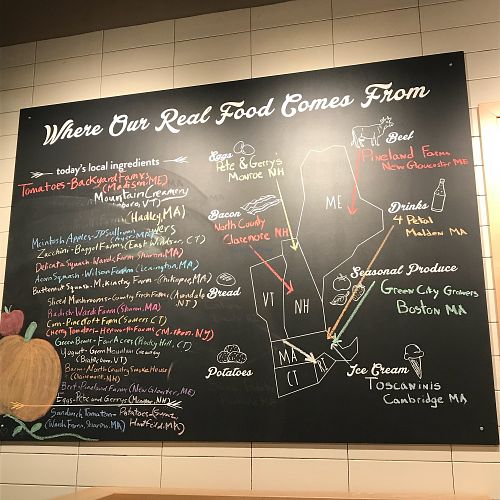 Where Our Real Food Comes From
today's local ingredients
Tomatoes-Backyard Farms
(Madison, ME)
Mountain Creamery
boro, VT)
(Hadley, MA)
McIntosh Apples-JP Sullivan
Zucchini-Baggott Farms (East Windsor, CT)
Delicata Squash-Wards Farm Sharon, MA)
Acorn Squash-Wilson Farm (Lexington, MA)
Butternut Squash-McKinstry Farm (Chicopee, MA)
Sliced Mushrooms-Country Fresh Farms (Avondale
Radish-Wards Farm (Sharon, MA)
Corn-Pinecroft Farm (Somers CT)
Cherry Tomatoes-Hepworth Farms (Milton, NY)
Green Beans-Fair Acres (Rocky Hill, CT)
Yogurt-Green Mountain Creamery
(Brattleboro, VT)
Bacon-North Country Smoke House
(Claremont, NH)
Beef-Pineland Farms (New Gloucester, ME)
Eggs-Pete and Gerrys (Monroe, NH)
Sandwich Tomatoes-
(Wards Farm, Sharon, MA)
Potatoes-
Hatfield, MA)
Eggs
Pete & Gerry's
Monroe NH
Bacon
North Country
Claremont NH
Bread
Potatoes
ME
VT
NH
MA
CT
RI
Beef
Pineland Farms
New Gloucester ME
Drinks
4 Petal
Malden MA
Seasonal Produce
Green City Growers
Boston MA
Ice Cream
Toscaninis
Cambridge MA